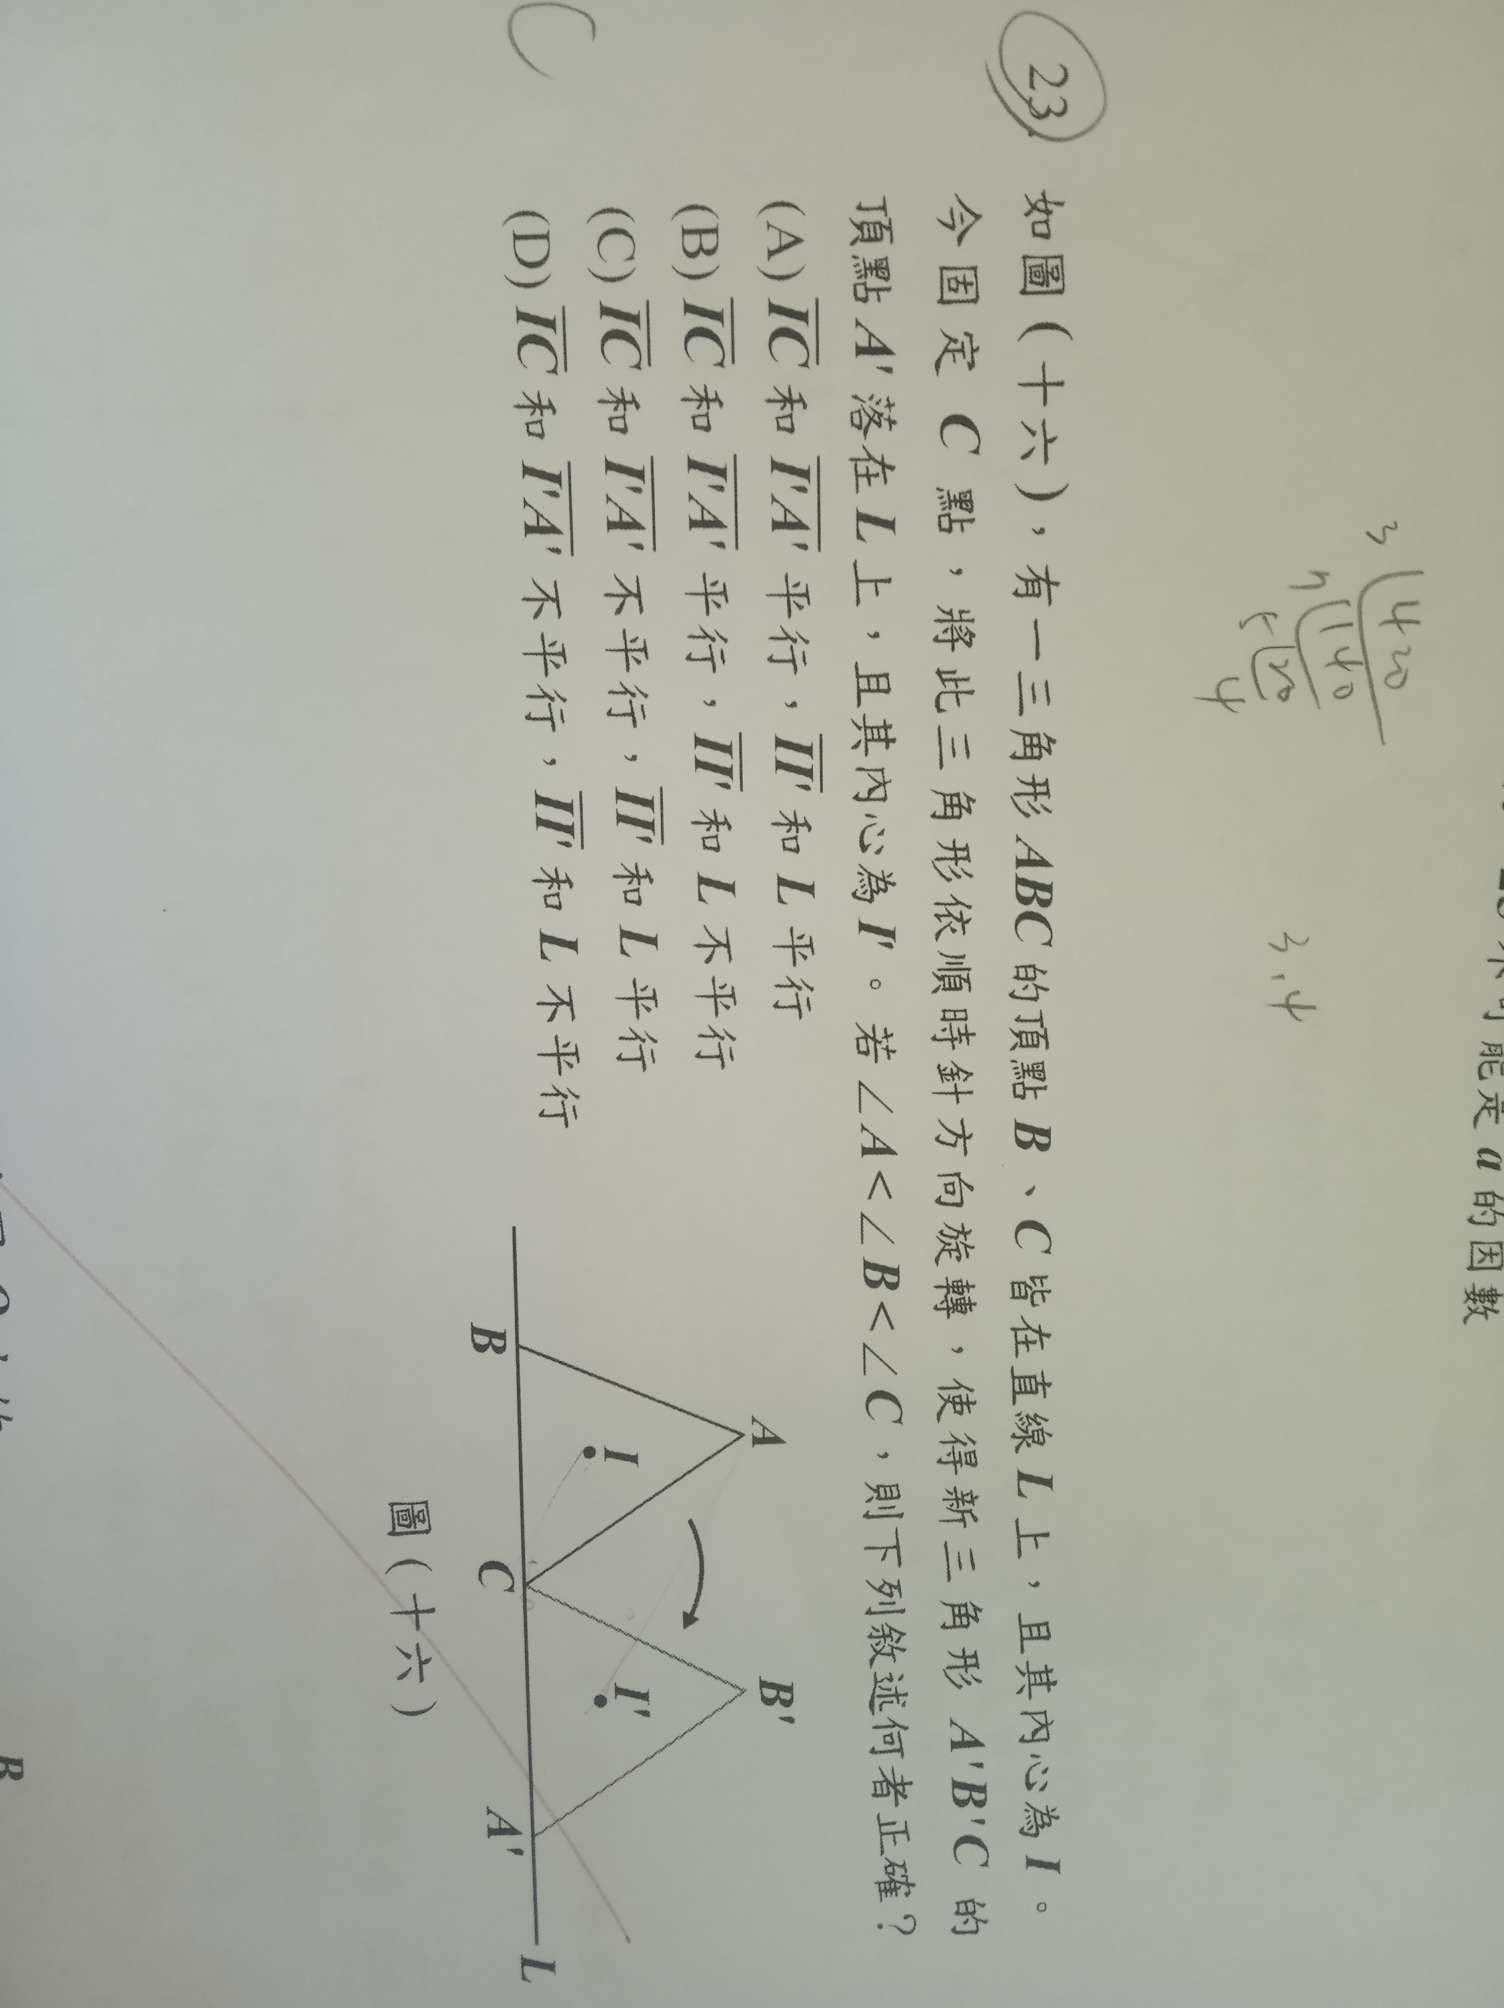 不可能是 a 的因數
3 420
140
20
4
3.4
23. 如圖(十六)，有一三角形 ABC 的頂點 B、C 皆在直線 L 上，且其內心為 I。
今固定 C 點，將此三角形依順時針方向旋轉，使得新三角形 A'B'C 的
頂點 A' 落在 L 上，且其內心為 I'。若∠A<∠B<∠C，則下列敘述何者正確？
(A) IC 和 I'A' 平行，II' 和 L 平行
(B) IC 和 I'A' 平行，II' 和 L 不平行
(C) IC 和 I'A' 不平行，II' 和 L 平行
(D) IC 和 I'A' 不平行，II' 和 L 不平行
C
A
B'
I
I'
B
C
A'
L
圖(十六)
B